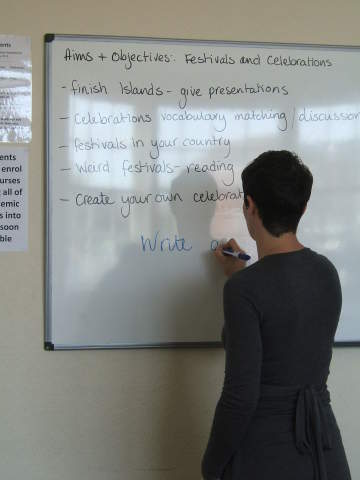 Aims + Objectives: Festivals and Celebrations
- finish Islands - give presentations
- Celebrations vocabulary matching / discussion
- festivals in your country
- Weird festivals - reading
- Create your own celebrat
Write
ents
ents
enrol
urses
all of
emic
s into
soon
ble